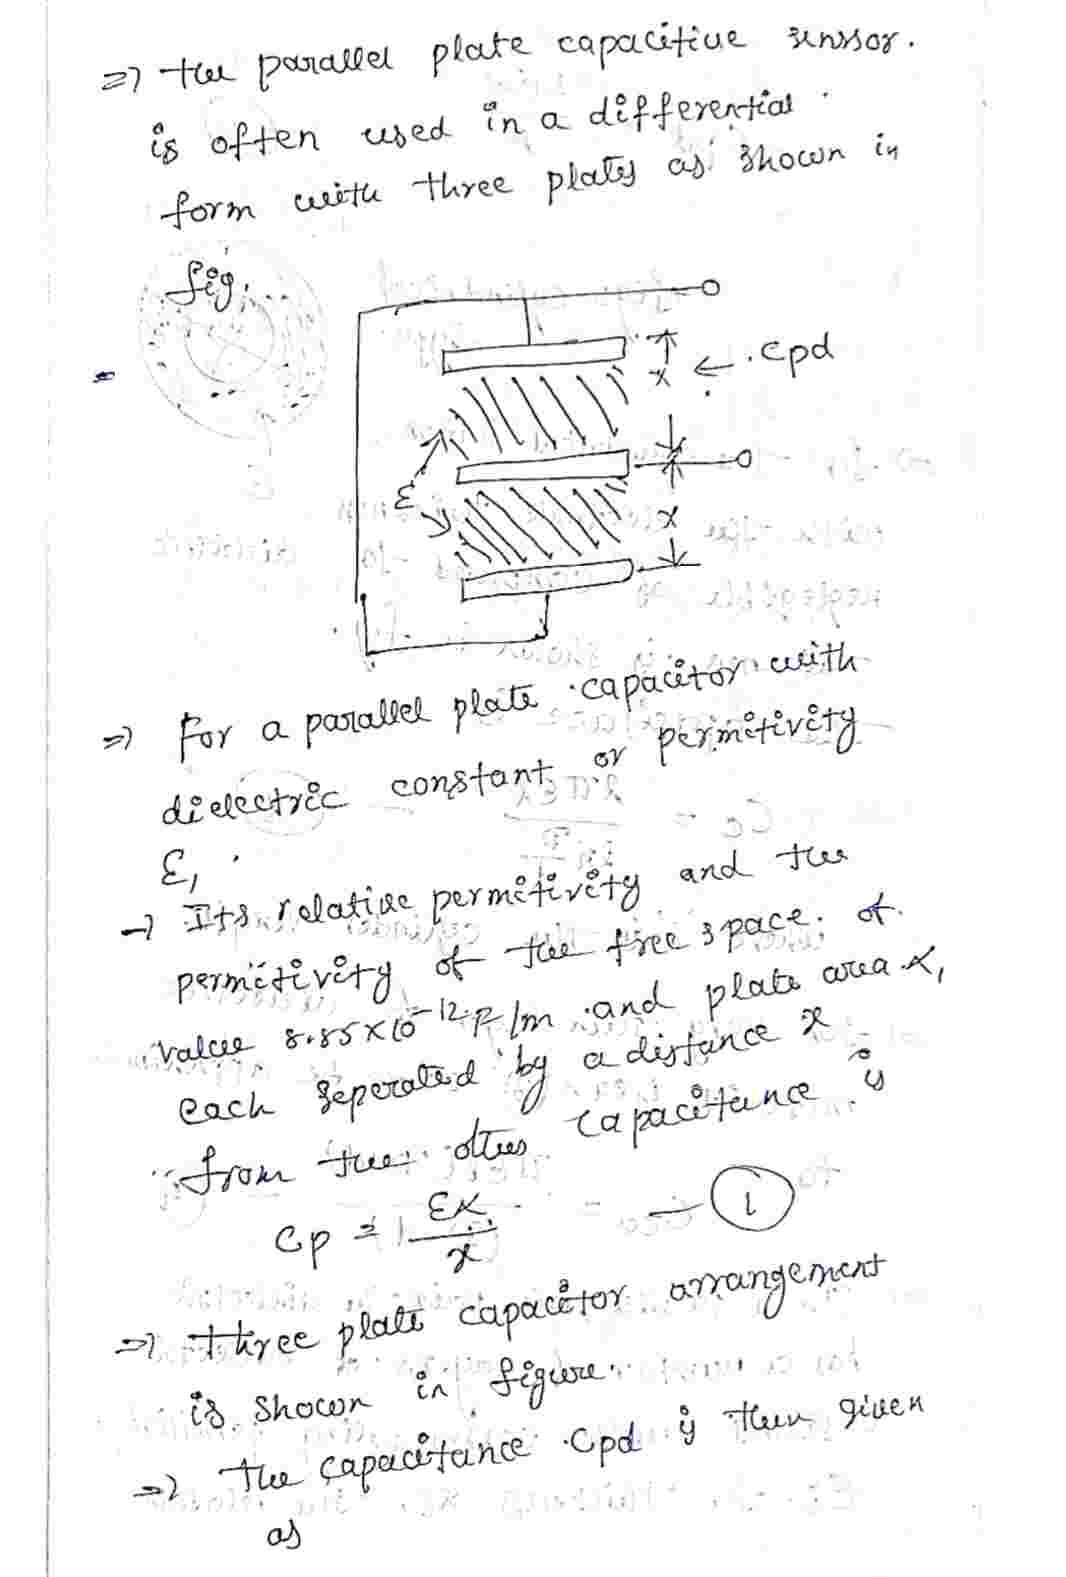 => The parallel plate capacitive sensor.
is often used in a differential
form with three plates as shown in
fig.
x ← cpd
ε
x
=> For a parallel plate capacitor with
dielectric constant or permitivity
ε,
→ Its relative permitivity and the
permitivity of the free space. of
value 8.85×10⁻¹² F/m and plate area α,
each seperated by a distance x
from the other capacitance is
Cp = εα/x — ①
=> three plate capacitor arrangement
is shown in figure.
=> The capacitance Cpd is then given
as